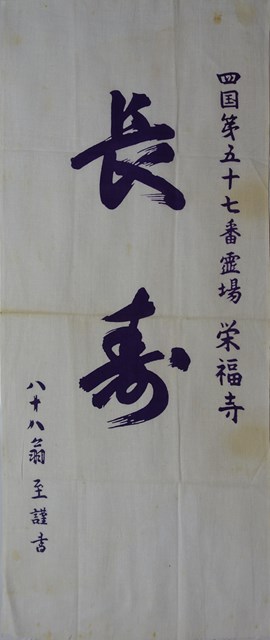 四国第五十七番霊場 栄福寺
長寿
八十八翁 至 謹書